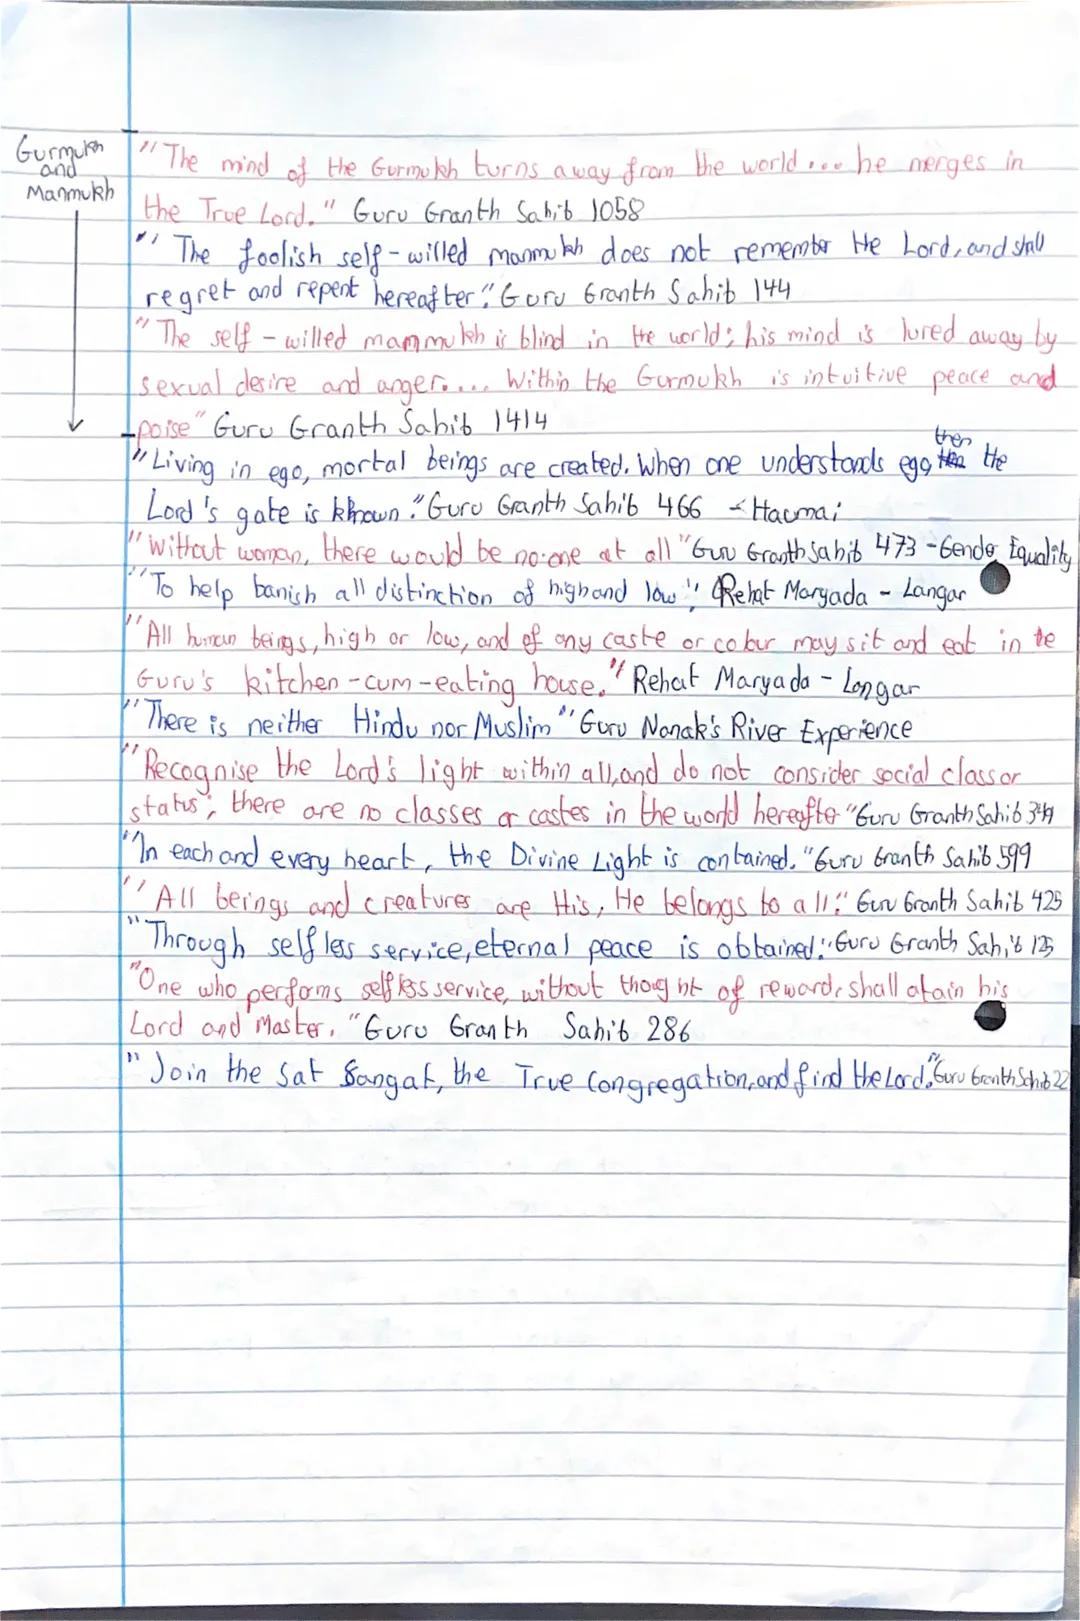 Gurmukh
and
Manmukh
"The mind of the Gurmukh turns away from the world... he merges in
the True Lord." Guru Granth Sahib 1058
"The foolish self-willed manmukh does not remember the Lord, and shall
regret and repent hereafter." Guru Granth Sahib 144
"The self-willed manmukh is blind in the world; his mind is lured away by
sexual desire and anger.... Within the Gurmukh is intuitive peace and
poise" Guru Granth Sahib 1414
"Living in ego, mortal beings are created. When one understands ego, then the
Lord's gate is known." Guru Granth Sahib 466 - Haumai
"Without woman, there would be no-one at all" Guru Granth Sahib 473 - Gender Equality
"To help banish all distinction of high and low" Rehat Maryada - Langar
"All human beings, high or low, and of any caste or colour may sit and eat in the
Guru's kitchen-cum-eating house." Rehat Maryada - Langar
"There is neither Hindu nor Muslim" Guru Nanak's River Experience
"Recognise the Lord's light within all, and do not consider social class or
status; there are no classes or castes in the world hereafter" Guru Granth Sahib 349
"In each and every heart, the Divine Light is contained." Guru Granth Sahib 599
"All beings and creatures are His, He belongs to all." Guru Granth Sahib 425
"Through selfless service, eternal peace is obtained." Guru Granth Sahib 125
"One who performs selfless service, without thought of reward, shall attain his
Lord and Master." Guru Granth Sahib 286
"Join the Sat Sangat, the True Congregation, and find the Lord." Guru Granth Sahib 22